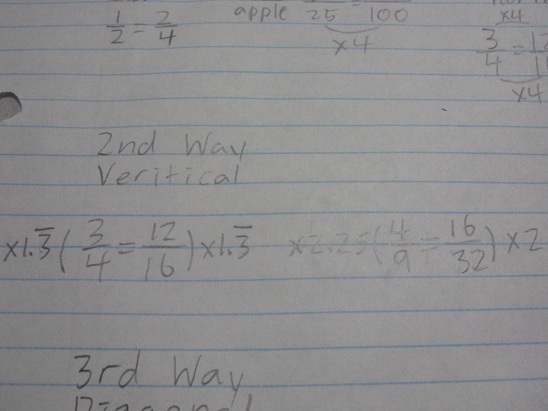 1/2 = 2/4
apple 25 100
x4
x4
3/4 =
x4
2nd Way
Veritical
x1.3̅ ( 3/4 = 12/16 ) x1.3̅ x2.25 ( 4/9 = 16/32 ) x2
3rd Way